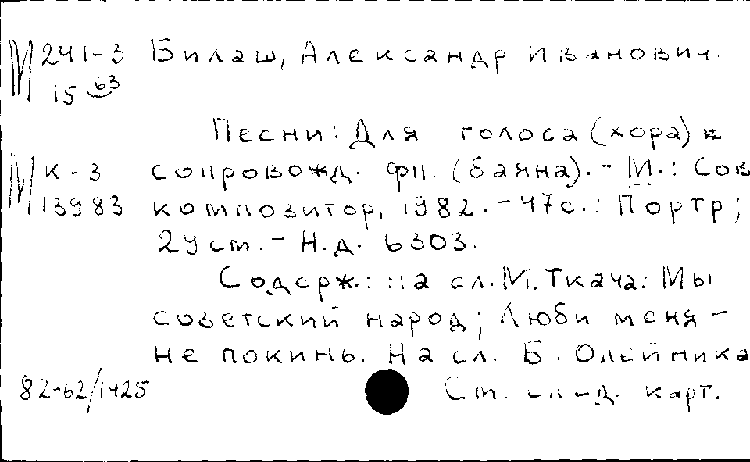 М 241-3 Билаш, Александр Иванович.
15 63
Песни: Для голоса (хора) в
М К-3 сопровожд. фп. (баяна). - М.: Сов
13983 композитор, 1982. - 47с.: Портр;
29 см. - Н.д. 6303.
Содерж.: на сл. М. Ткача: Мы
советский народ; Люби меня -
не покинь. На сл. Б. Олейника
82-62/1425 См. след. карт.